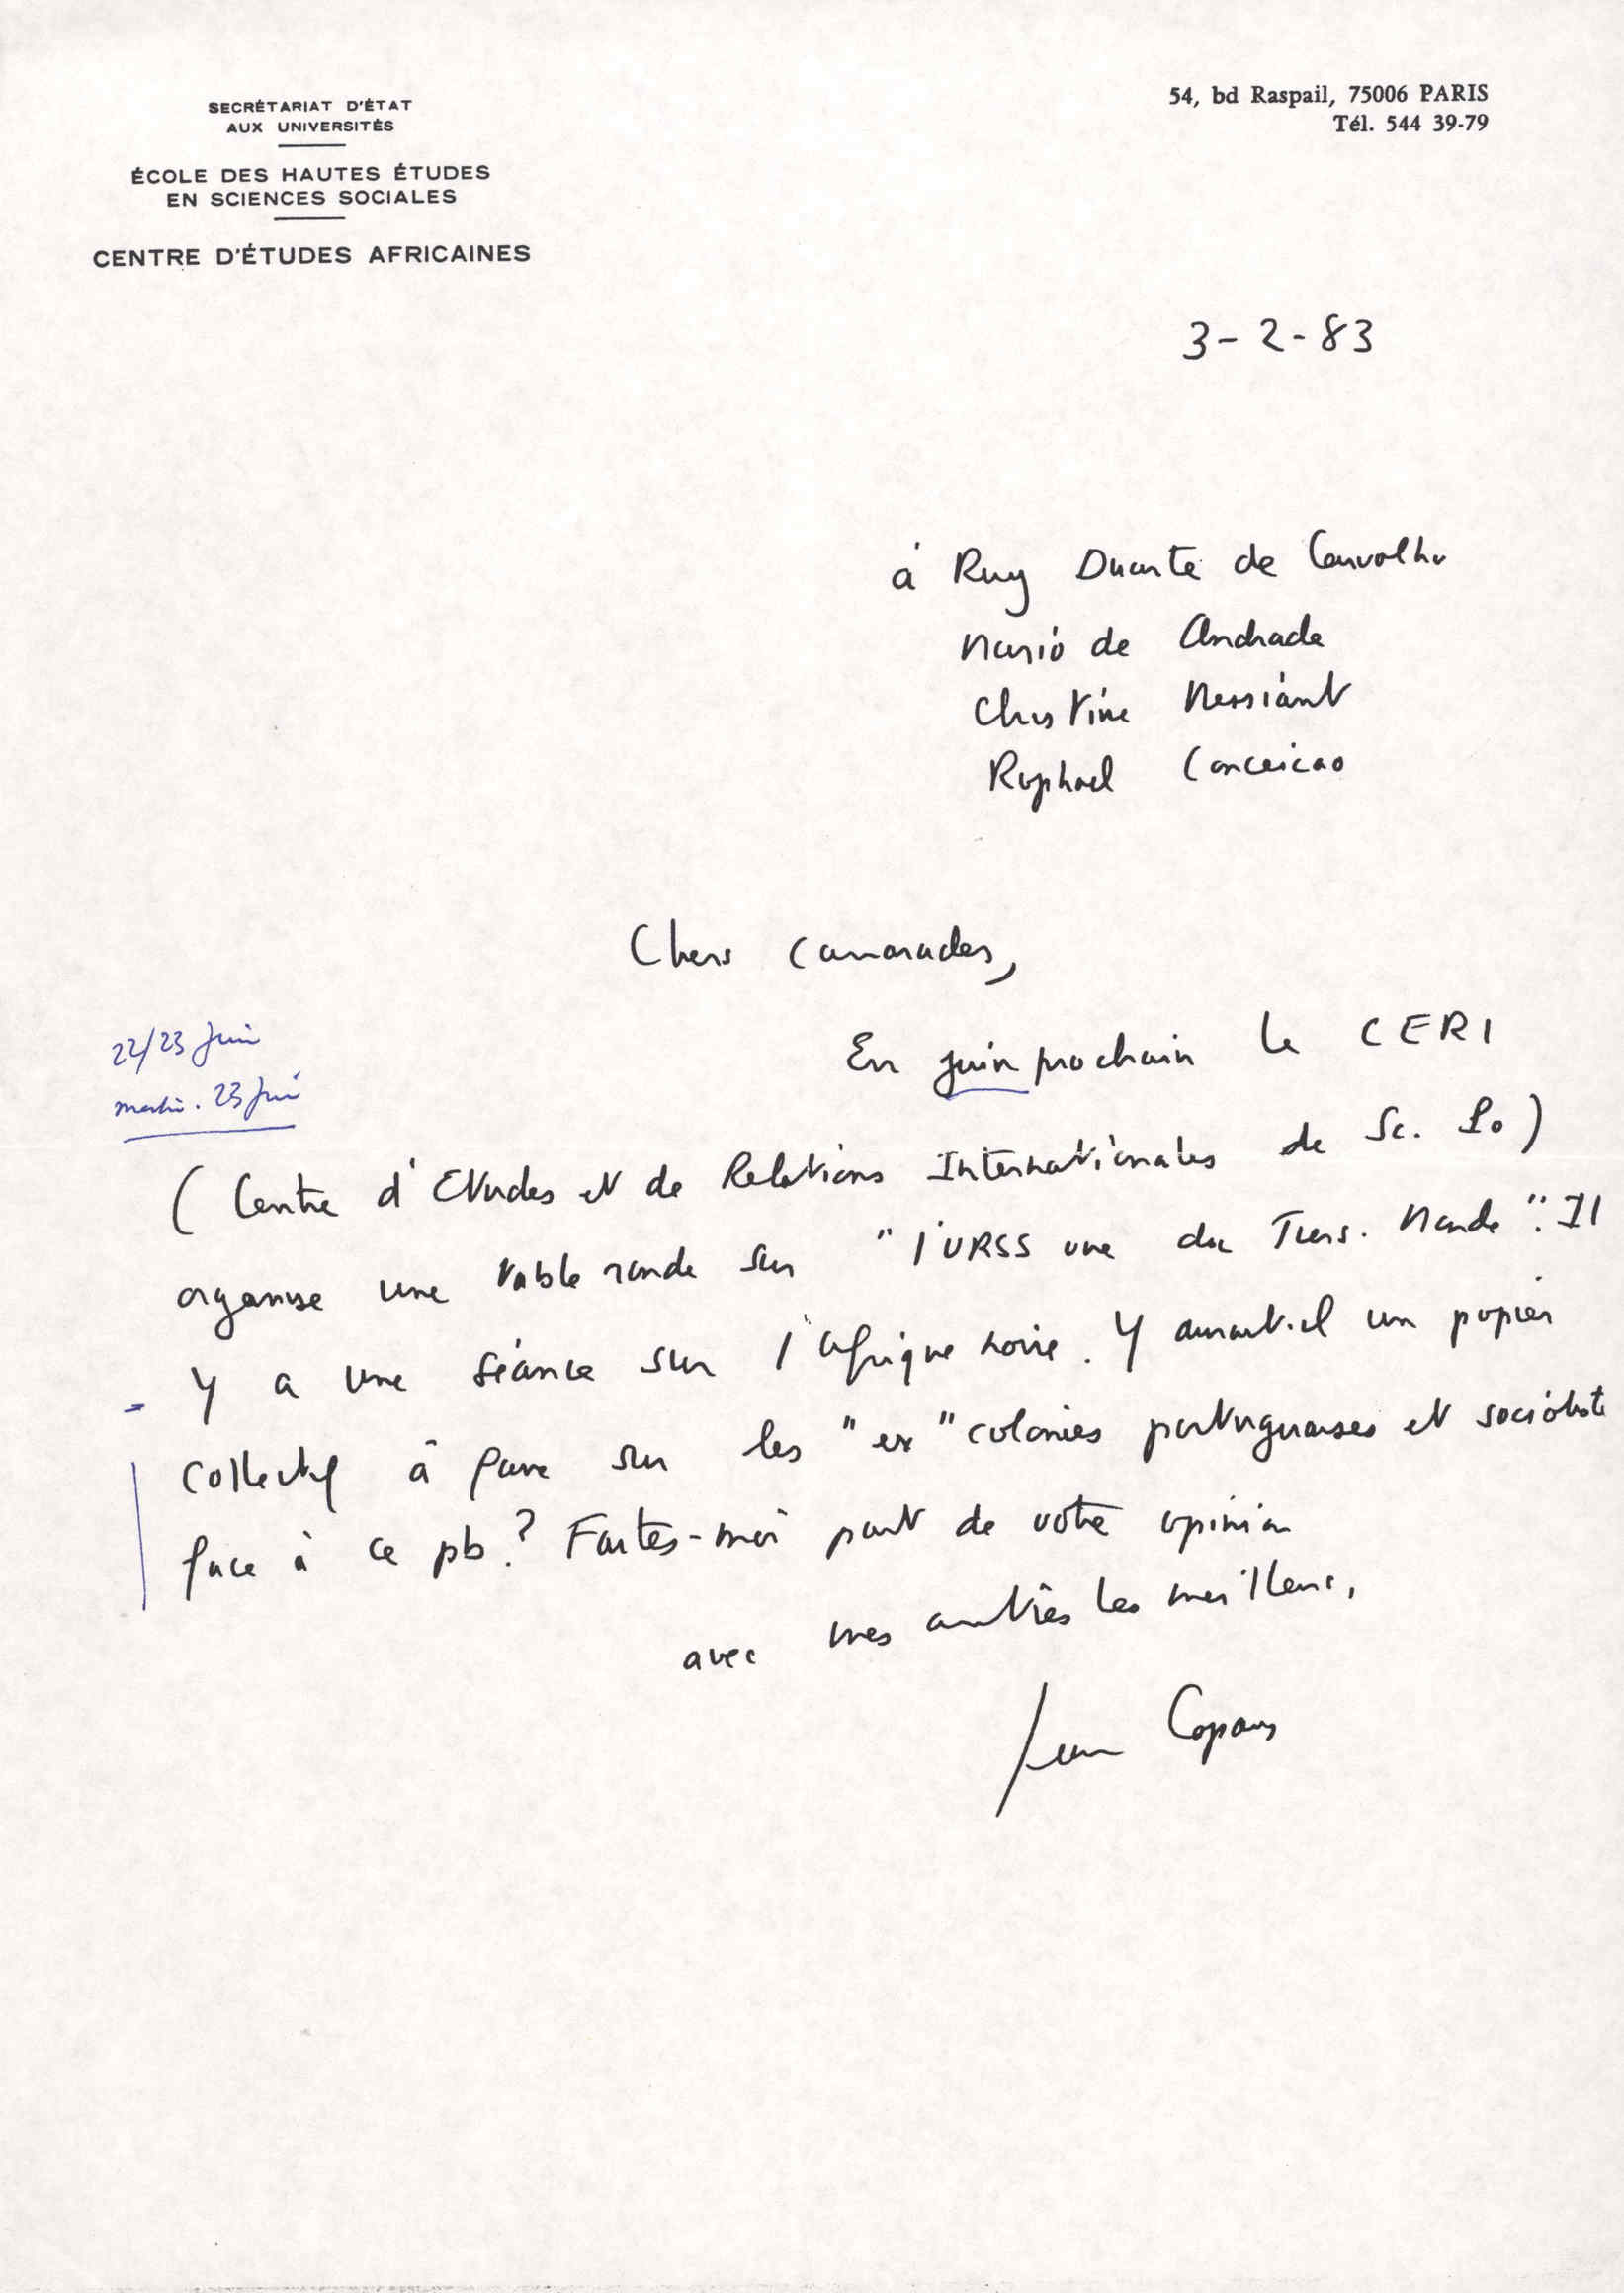 SECRÉTARIAT D'ÉTAT
AUX UNIVERSITÉS
ÉCOLE DES HAUTES ÉTUDES
EN SCIENCES SOCIALES
CENTRE D'ÉTUDES AFRICAINES
54, bd Raspail, 75006 PARIS
Tél. 544 39-79
3-2-83
à Ruy Duarte de Carvalho
Mario de Andrade
Christine Messiant
Raphael Conceicao
Chers camarades,
22/23 Juin
matin. 23 Juin
En juin prochain le CERI
(Centre d'Etudes et de Relations Internationales de Sc. Po)
organise une table ronde sur "l'URSS vue du Tiers. Monde". Il
y a une séance sur l'Afrique noire. Y aurait-il un papier
collectif à faire sur les "ex" colonies portugaises et socialiste
face à ce pb? Faites-moi part de votre opinion
avec mes amitiés les meilleures,
Jean Copans